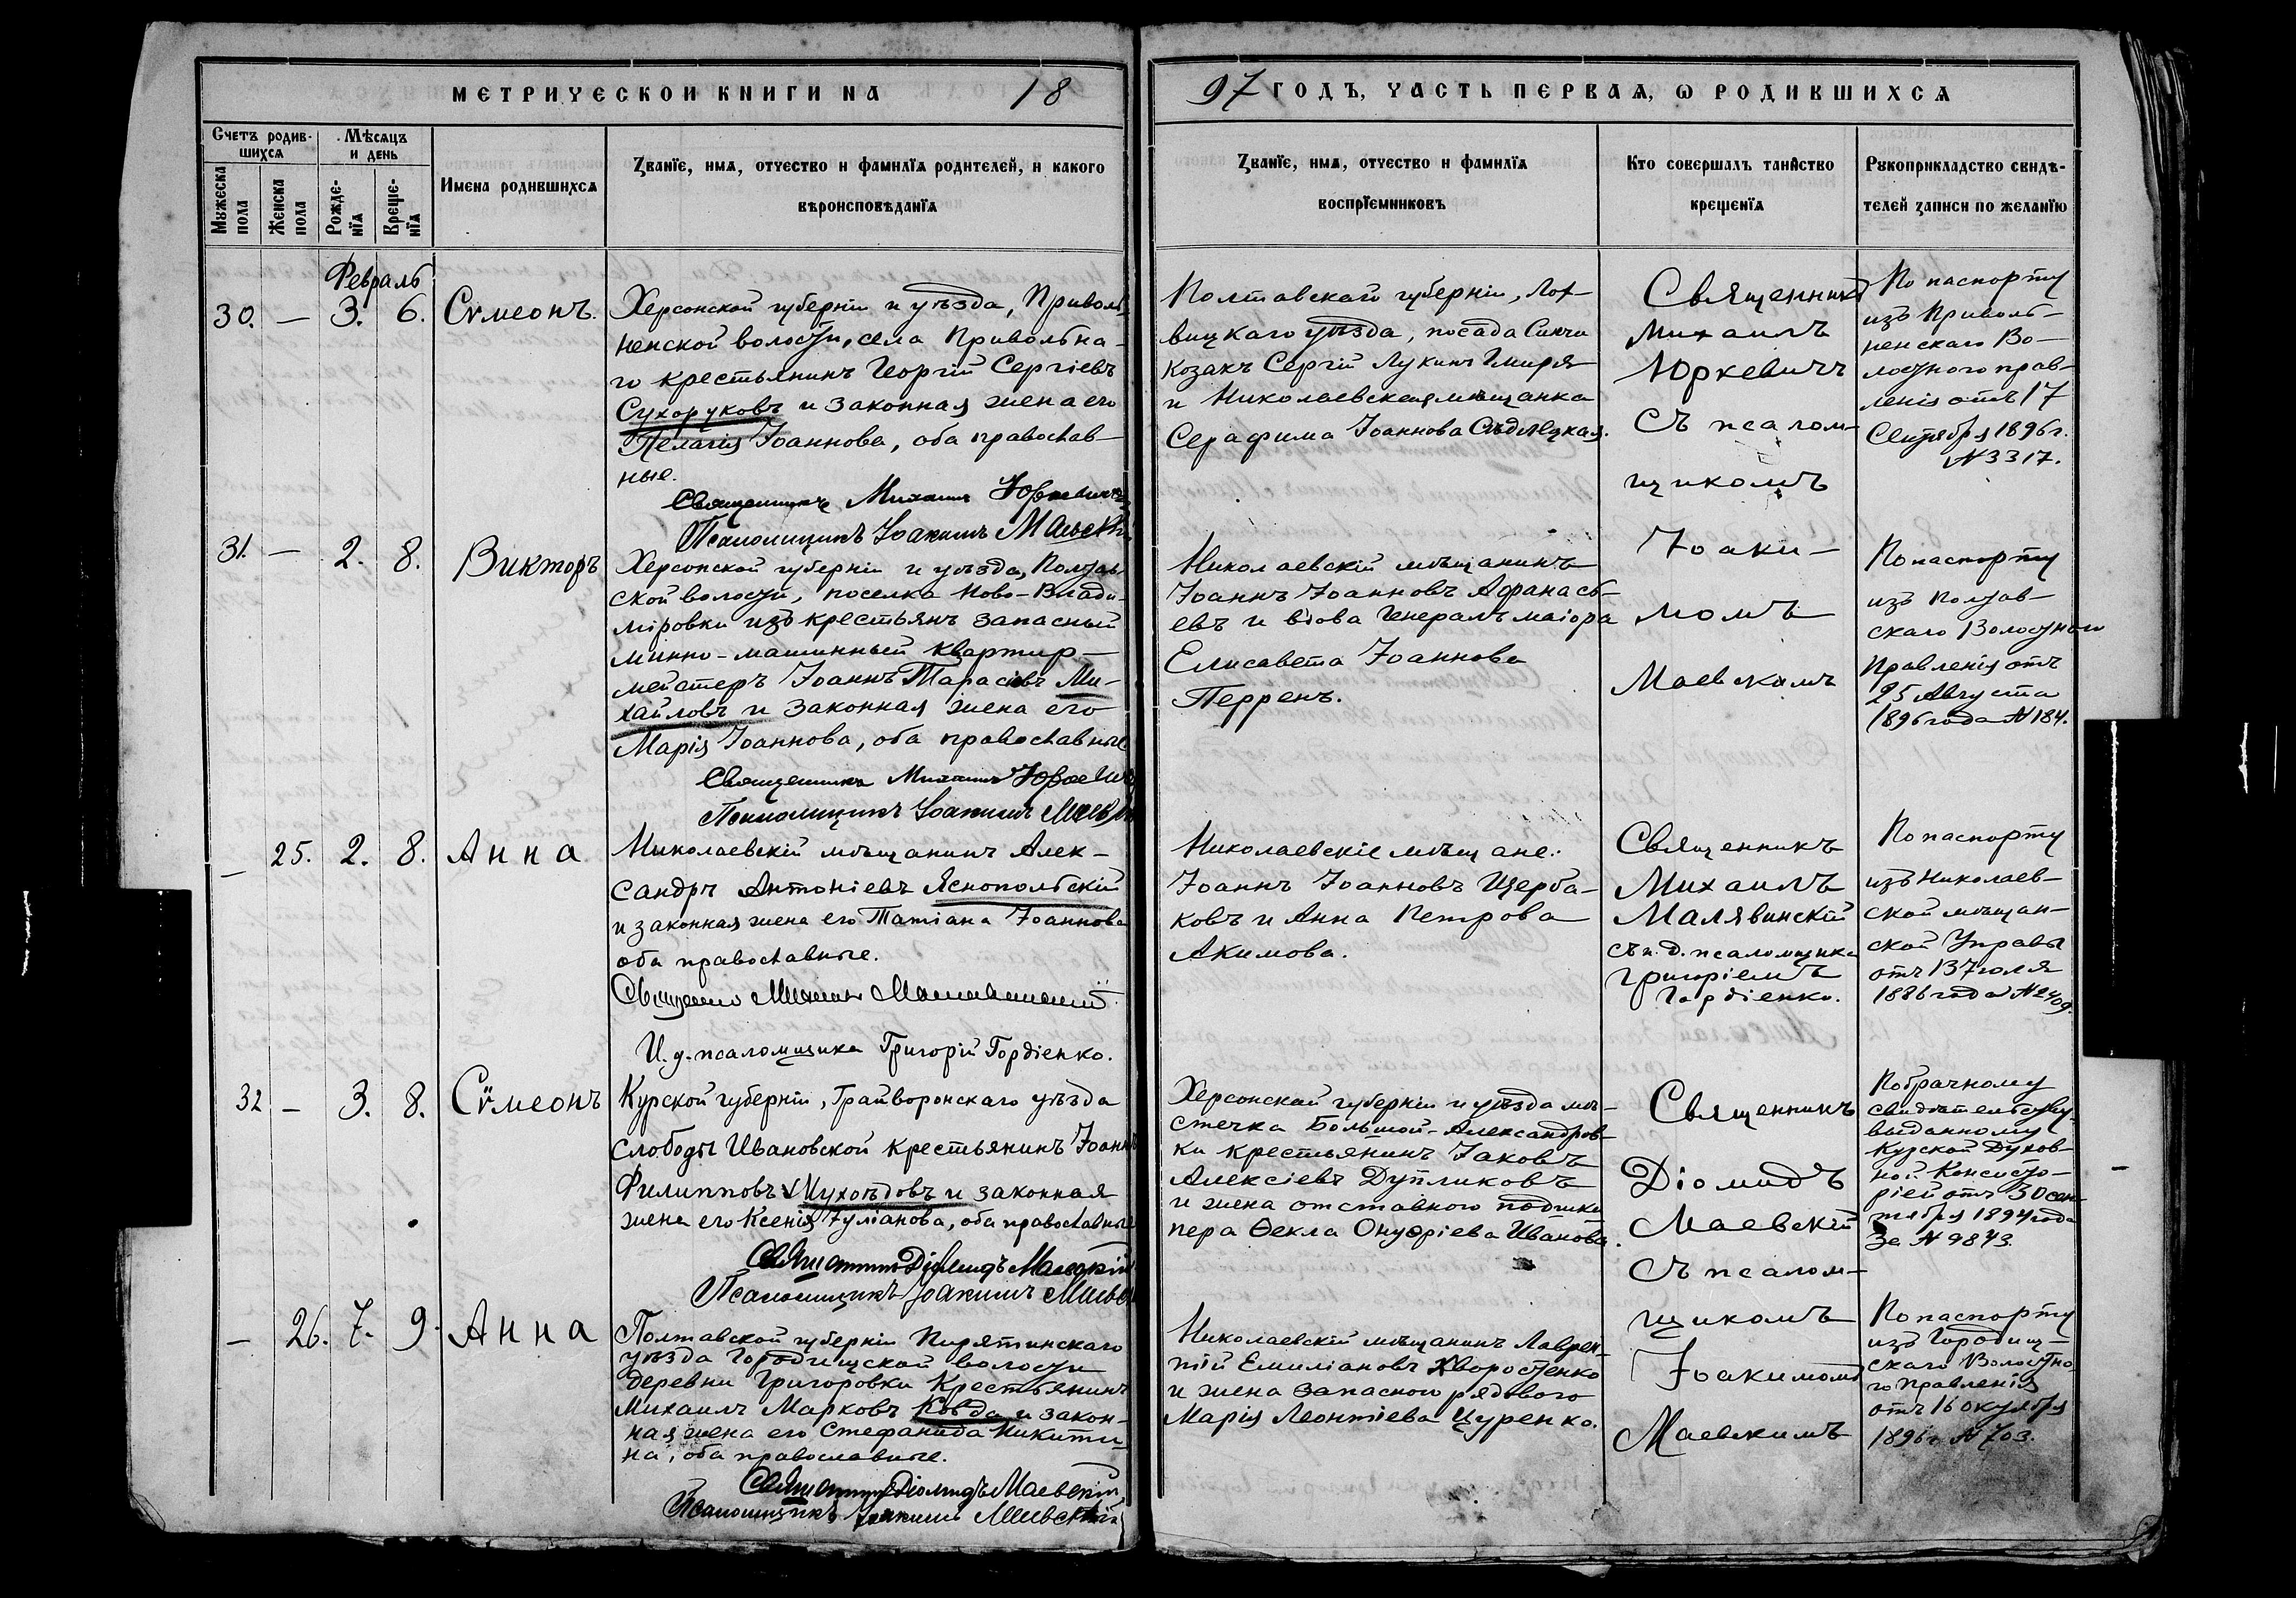 МЕТРИЧЕСКОЙ КНИГИ НА 18
97 ГОДЪ, ЧАСТЬ ПЕРВАЯ, Ѡ РОДИВШИХСЯ
Счетъ родив-
шихся
Мѣсяцъ
и день
Мужеска
пола
Женска
пола
Рожде-
нїя
Креще-
нїя
Имена родившихся
Званїе, имя, отчество и фамилїя родителей, и какого
вѣроисповѣданїя
Званїе, имя, отчество и фамилїя
воспрїемниковъ
Кто совершалъ таинство
крещенїя
Рукоприкладство свидѣ-
телей записи по желанїю
Февраль
30. — 3. 6. Сѵмеонъ.
Херсонской губерніи и уѣзда, Приволь-
ненской волости, села Привольна-
го крестьянинъ Георгій Сергіевъ
Сухоруковъ и законная жена его
Пелагія Іоаннова, оба православ-
ные.
Священникъ Михаилъ Юркевичъ
Псаломщикъ Іоакимъ Маевскій
Полтавской губерніи, Лох-
вицкаго уѣзда, посада
козакъ Сергій Лукинъ
и Николаевская мѣщанка
Серафима Іоаннова Сѣдлецкая.
Священникъ
Михаилъ
Юркевичъ
съ псалом-
щикомъ
Іоаки-
момъ
Маевскимъ
По паспорту
изъ Приволь-
ненскаго Во-
лостного прав-
ленія отъ 17
Сентября 1896 г.
№ 3317.
31. — 2. 8. Викторъ
Херсонской губерніи и уѣзда, Полтав-
ской волости, поселка Ново-Влади-
міровки изъ крестьянъ запасный
минно-машинный квартир-
мейстеръ Іоаннъ Тарасіевъ Ми-
хайловъ и законная жена его
Марія Іоаннова, оба православные
Священникъ Михаилъ Юркевичъ
Псаломщикъ Іоакимъ Маевскій
Николаевскій мѣщанинъ
Іоаннъ Іоанновъ Афанась-
евъ и вдова Генералъ маіора
Елисавета Іоаннова
Перренъ.
По паспорту
изъ Полтав-
скаго Волостного
Правленія отъ
25 Августа
1896 года № 184.
— 25. 2. 8. Анна
Николаевскій мѣщанинъ Алек-
сандръ Антоніевъ Яснопольскій
и законная жена его Татіана Іоаннова
оба православные.
Священникъ Михаилъ Малявинскій
И. д. псаломщика Григорій Гордіенко.
Николаевскіе мѣщане:
Іоаннъ Іоанновъ Щерба-
ковъ и Анна Петрова
Акимова.
Священникъ
Михаилъ
Малявинскій
съ и. д. псаломщика
Григоріемъ
Гордіенко.
По паспорту
изъ Николаев-
ской мѣщан-
ской Управы
отъ 13 Іюля
1886 года № 2409.
32 — 3. 8. Сѵмеонъ
Курской губерніи, Грайворонскаго уѣзда
слободы Ивановской крестьянинъ Іоаннъ
Филипповъ Мухоѣдовъ и законная
жена его Ксенія Іуліанова, оба православные
Священникъ Діомидъ Маевскій
Псаломщикъ Іоакимъ Маевскій
Херсонской губерніи и уѣзда мѣ-
стечка Большой-Александров-
ки крестьянинъ Іаковъ
Алексіевъ Дупликовъ
и жена отставного подшки-
пера Ѳекла Онуфріева Иванова.
Священникъ
Діомидъ
Маевскій
Съ псалом-
щикомъ
Іоакимомъ
Маевскимъ
По брачному
свидѣтельству,
выданному
Курской Духов-
ной Консисто-
ріей отъ 30 сен-
тября 1894 года
за № 9843.
— 26. 7. 9. Анна
Полтавской губерніи Пирятинскаго
уѣзда Городищской волости
деревни Григоровки Крестьянинъ
Михаилъ Марковъ Ковда и закон-
ная жена его Стефанида Никити-
на, оба православные.
Священникъ Діомидъ Маевскій
Псаломщикъ Іоакимъ Маевскій
Николаевскій мѣщанинъ Лаврен-
тій Емиліановъ Хворостенко
и жена запасного рядового
Марія Леонтіева Цуренко.
По паспорту
изъ Городищ-
скаго Волостно-
го правленія
отъ 16 октября
1896 г. № 703.